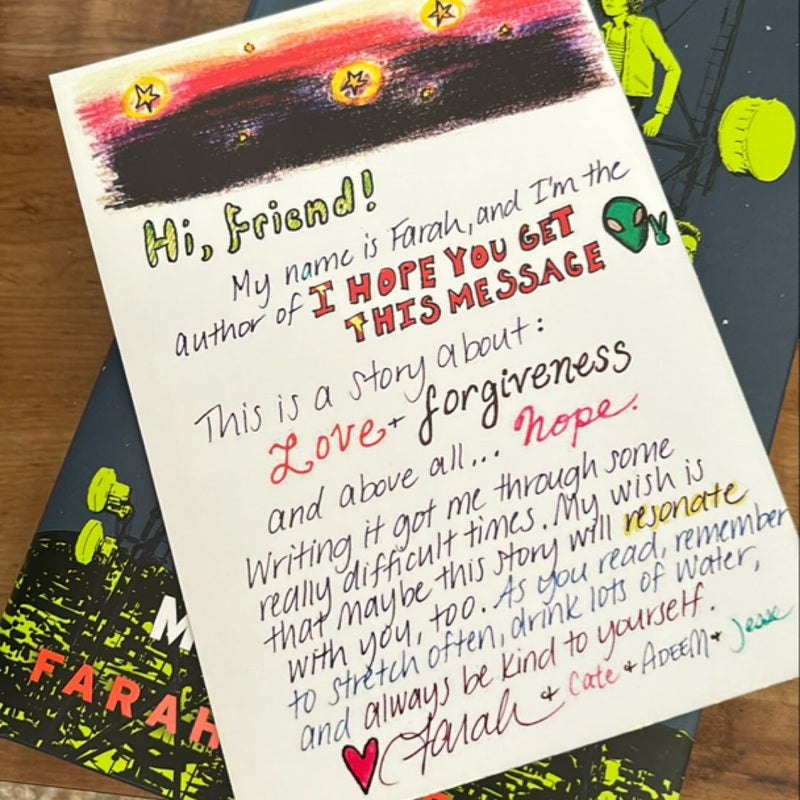 Hi, friend!
My name is Farah, and I'm the
author of I HOPE YOU GET
THIS MESSAGE
This is a story about:
Love + forgiveness
and above all... hope.
Writing it got me through some
really difficult times. My wish is
that maybe this story will resonate
with you, too. As you read, remember
to stretch often, drink lots of water,
and always be kind to yourself.
Farah + Cate + ADEEM + Jesse
M
FARAH